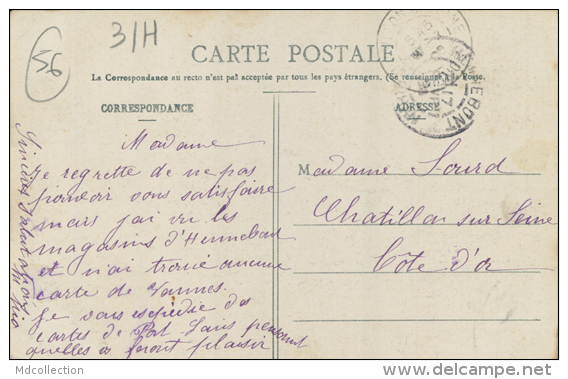 56
31H
CARTE POSTALE
La Correspondance au recto n'est pas acceptée par tous les pays étrangers. (Se renseigner à la Poste.
CORRESPONDANCE
ADRESSE
HENNEBONT
Madame
Je regrette de ne pas
pouvoir vous satisfaire
mais j'ai vu les
magasins d'Hennebont
et n'ai trouvé aucune
carte de Vannes.
Je vous expédie des
cartes de Port Louis pensant
quelles feront plaisir
Sincères Salutations
Madame Sourd
Chatillon sur Seine
Côte d'or
MyCollection
delcampe.net